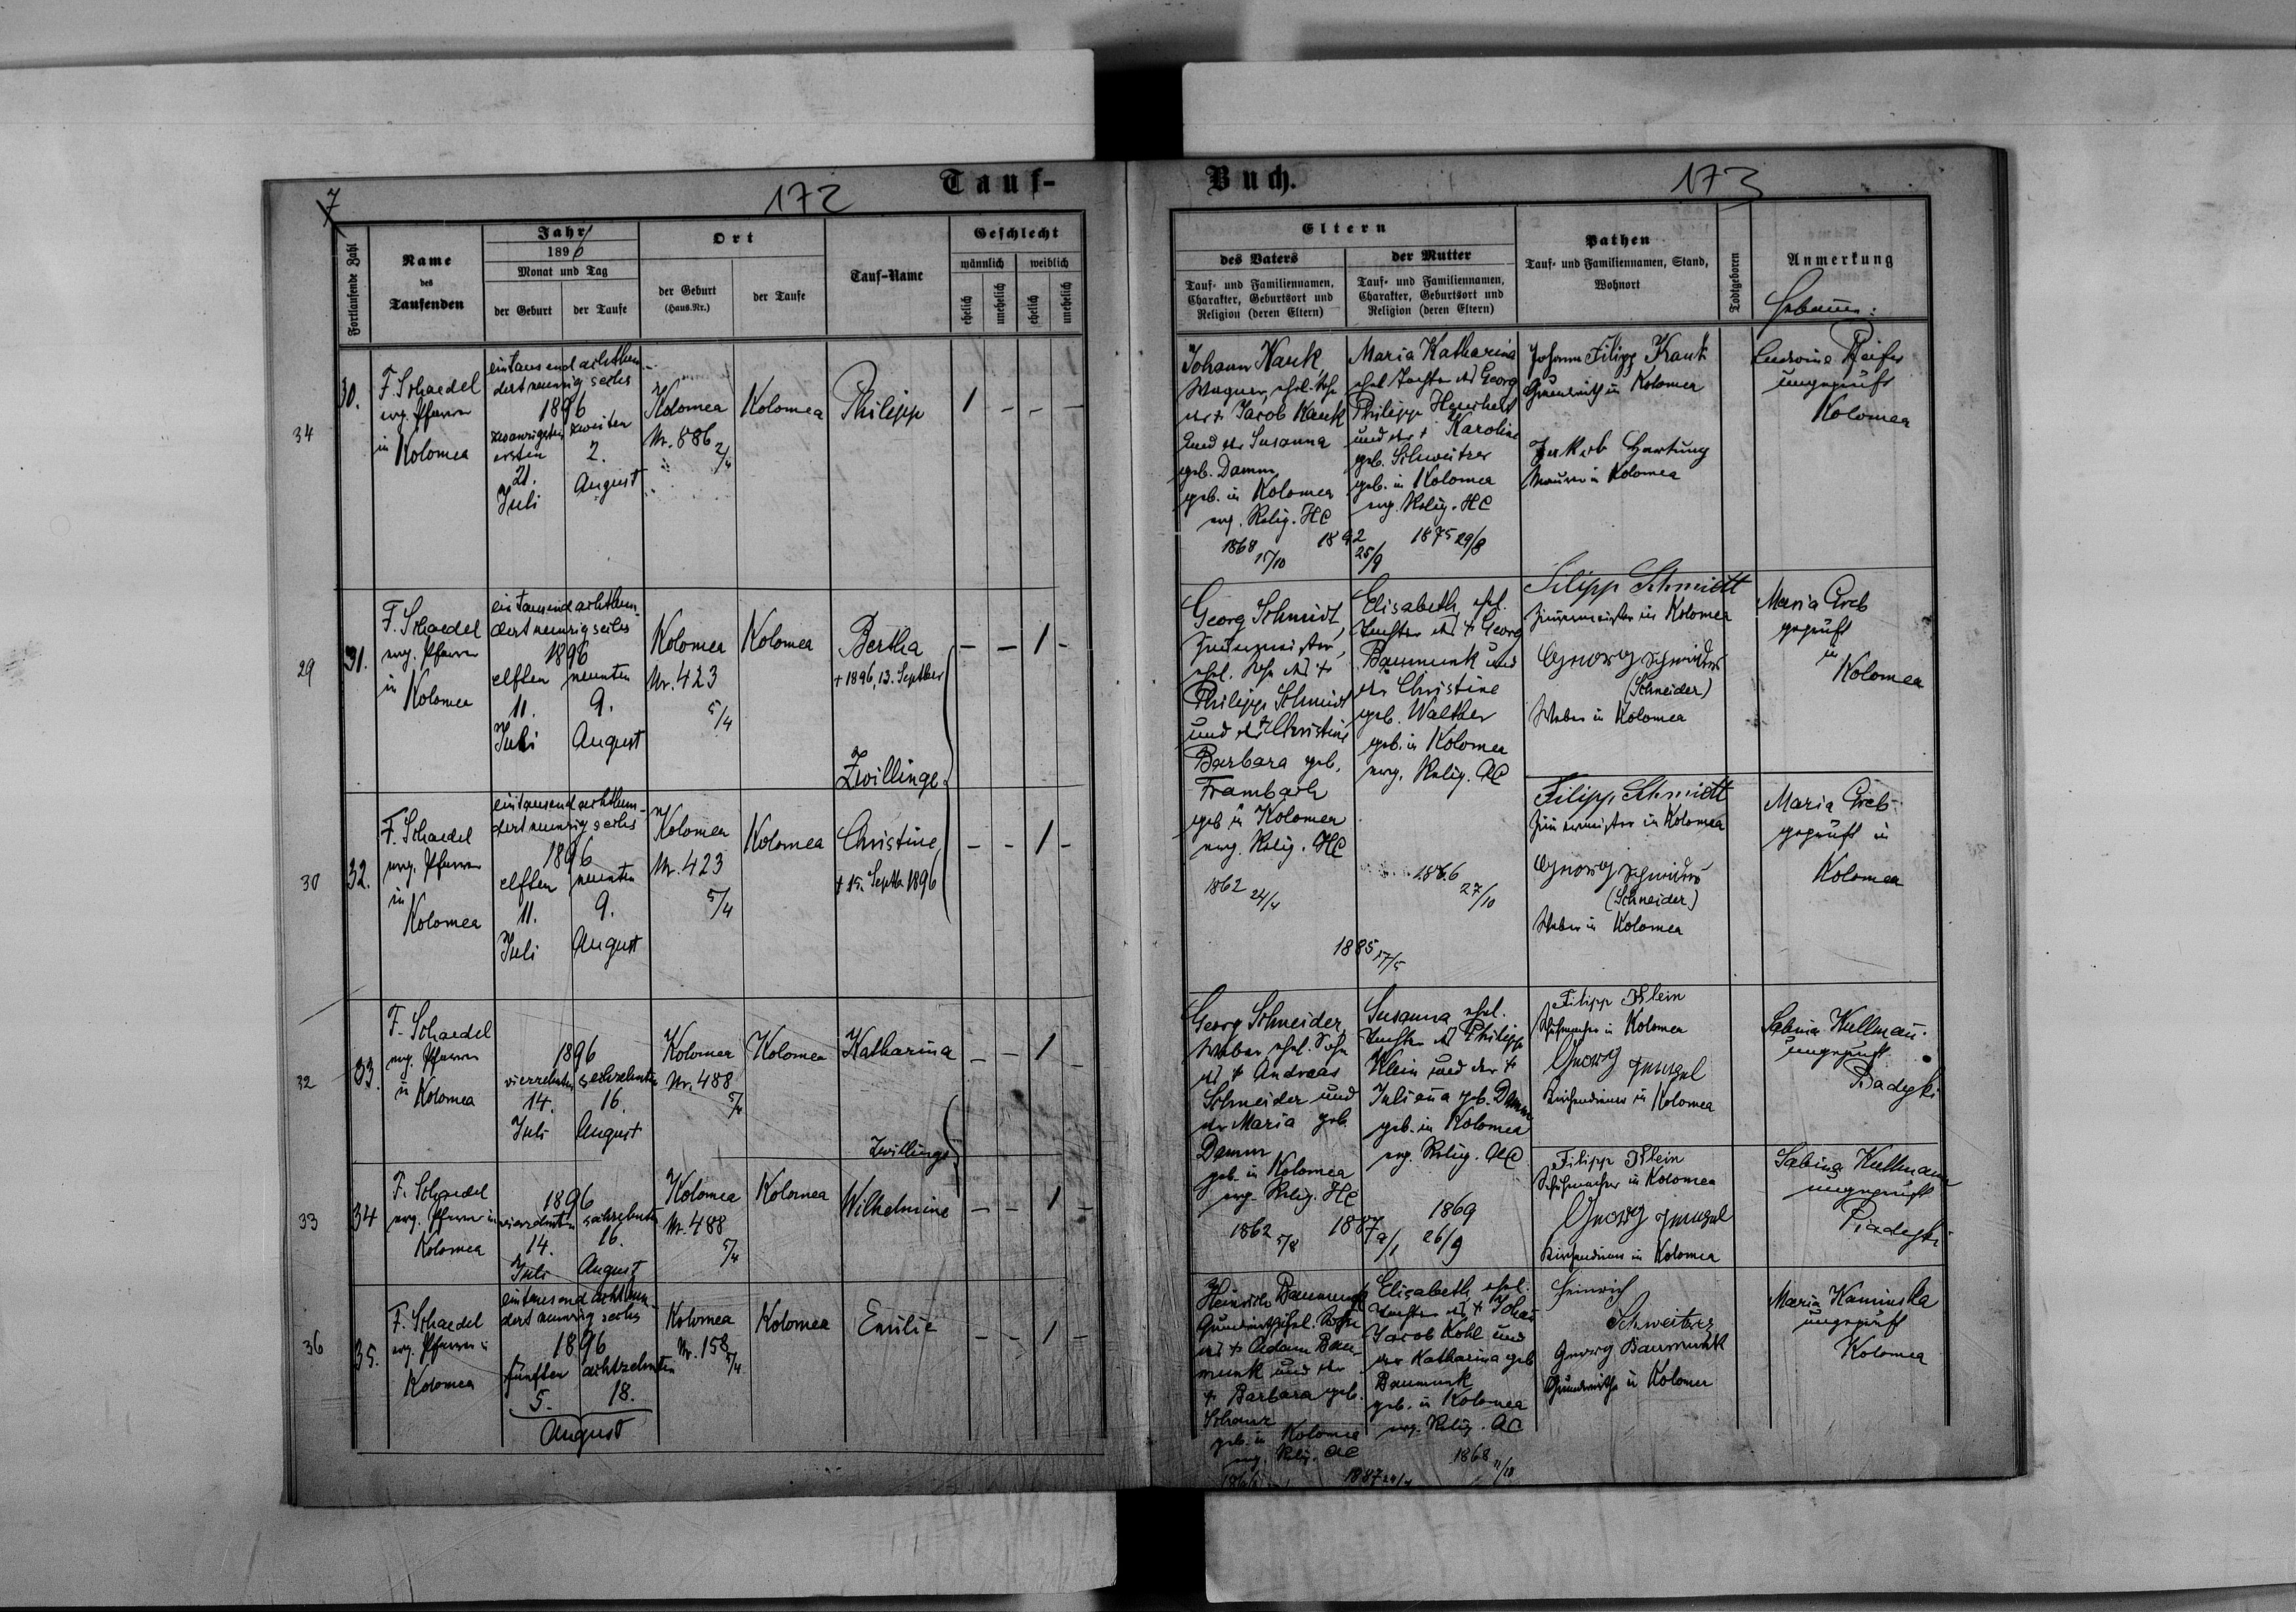 7
172
Tauf-
Fortlaufende Zahl
Name
des
Taufenden
Jahr
1896
Monat und Tag
der Geburt
der Taufe
Ort
der Geburt
(Haus-Nr.)
der Taufe
Tauf-Name
Geschlecht
männlich
weiblich
ehelich
unehelich
ehelich
unehelich
34
30.
F. Schaedel
evg. Pfarrer
in
Kolomea
eintausend achthun-
dert neunzig sechs
1896
zwanzigsten zweiten
ersten
21. 2.
Juli August
Kolomea
Nr. 886
2/4
Kolomea
Philipp
1 - - -
29
31.
F. Schaedel
evg. Pfarrer
in
Kolomea
ein tausend achthun-
dert neunzig sechs
1896
elften neunten
11. 9.
Juli August
Kolomea
Nr. 423
5/4
Kolomea
Bertha
+ 1896, 13. September
- - 1 -
Zwillinge
30
32.
F. Schaedel
evg. Pfarrer
in
Kolomea
eintausend achthun-
dert neunzig sechs
1896
elften neunten
11. 9.
Juli August
Kolomea
Nr. 423
5/4
Kolomea
Christine
+ 15. Septb 1896
- - 1 -
32
33.
F. Schaedel
evg. Pfarrer
in
Kolomea
1896
vierzehnten sechzehnten
14. 16.
Juli August
Kolomea
Nr. 488
5/4
Kolomea
Katharina
- - 1
Zwillinge
33
34
F. Schaedel
evg. Pfarrer in
Kolomea
1896
vierzehnten sechzehnten
14. 16.
Juli August
Kolomea
Nr. 488
5/4
Kolomea
Wilhelmine
- - 1 -
36
35.
F. Schaedel
evg. Pfarrer in
Kolomea
eintausend achthun-
dert neunzig sechs
1896
fünften achtzehnten
5. 18.
August
Kolomea
Nr. 158
5/4
Kolomea
Emilie
- - 1 -
Buch.
173
Eltern
des Vaters
Tauf- und Familiennamen,
Charakter, Geburtsort und
Religion (deren Eltern)
der Mutter
Tauf- und Familiennamen,
Charakter, Geburtsort und
Religion (deren Eltern)
Pathen
Tauf- und Familiennamen, Stand,
Wohnort
Todtgeboren
Anmerkung
Hebamme:
Johann Kauk
Wagner, ehel. Sohn
des + Jacob Kauk
und der Susanna
geb. Damm,
geb. in Kolomea
evg. Relig. HC
1868
15/10
1892
25/9
Maria Katharina
ehel. Tochter des Georg
Philipp Heuchert
und der + Karoline
geb. Schweitzer
geb. in Kolomea
evg. Relig. HC
1875 29/8
Johann Filipp Kauk
Grundwirth in Kolomea
Jakob Hartung
Maurer in Kolomea
Ludwina Pfeifer
ungeprüft
Kolomea
Georg Schmidt,
Zimmermeister,
ehel. Sohn des +
Philipp Schmidt
und der + Christine
Barbara geb.
Frambach
geb in Kolomea
evg. Relig. HC
1862 24/4
Elisabeth, ehel.
Tochter des + Georg
Baumunk und
der Christine
geb. Walther
geb. in Kolomea
evg. Relig. AC
1866
27/10
1885 17/5
Filipp Schmidt
Zimmermeister in Kolomea
Georg Schneider
(Schneider)
Weber in Kolomea
Maria Greb
geprüft
in
Kolomea
Filipp Schmidt
Zimmermeister in Kolomea
Georg Schneider
(Schneider)
Weber in Kolomea
Maria Greb
geprüft in
Kolomea
Georg Schneider,
Weber, ehel. Sohn
des + Andreas
Schneider und
der Maria geb.
Damm
geb. in Kolomea
evg. Relig. HC
1862 5/8
1887
9/1
Susanna ehel.
Tochter des Philipp
Klein und der +
Juliana geb. Damm
geb. in Kolomea
evg. Relig. AC
1869
26/9
Filipp Klein
Schuhmacher in Kolomea
Georg
Kirchendiener in Kolomea
Sabina Kullmann
ungeprüft
Piadyki
Filipp Klein
Schuhmacher in Kolomea
Georg
Kirchendiener in Kolomea
Sabina Kullmann
ungeprüft
Piadyki
Heinrich Baumunk
Grundwirth, ehel. Sohn
des + Adam Bau-
munk und der
+ Barbara geb.
Schanz
geb. in Kolomea
evg. Relig. AC
Elisabeth, ehel.
Tochter des + Johan
Jacob Kohl und
der Katharina geb
Baumunk
geb. in Kolomea
evg. Relig. AC
1868
1887 24/4
Heinrich
Schweitzer
Georg Baumunk
Grundwirthe in Kolomea
Maria Kaminska
ungeprüft
Kolomea